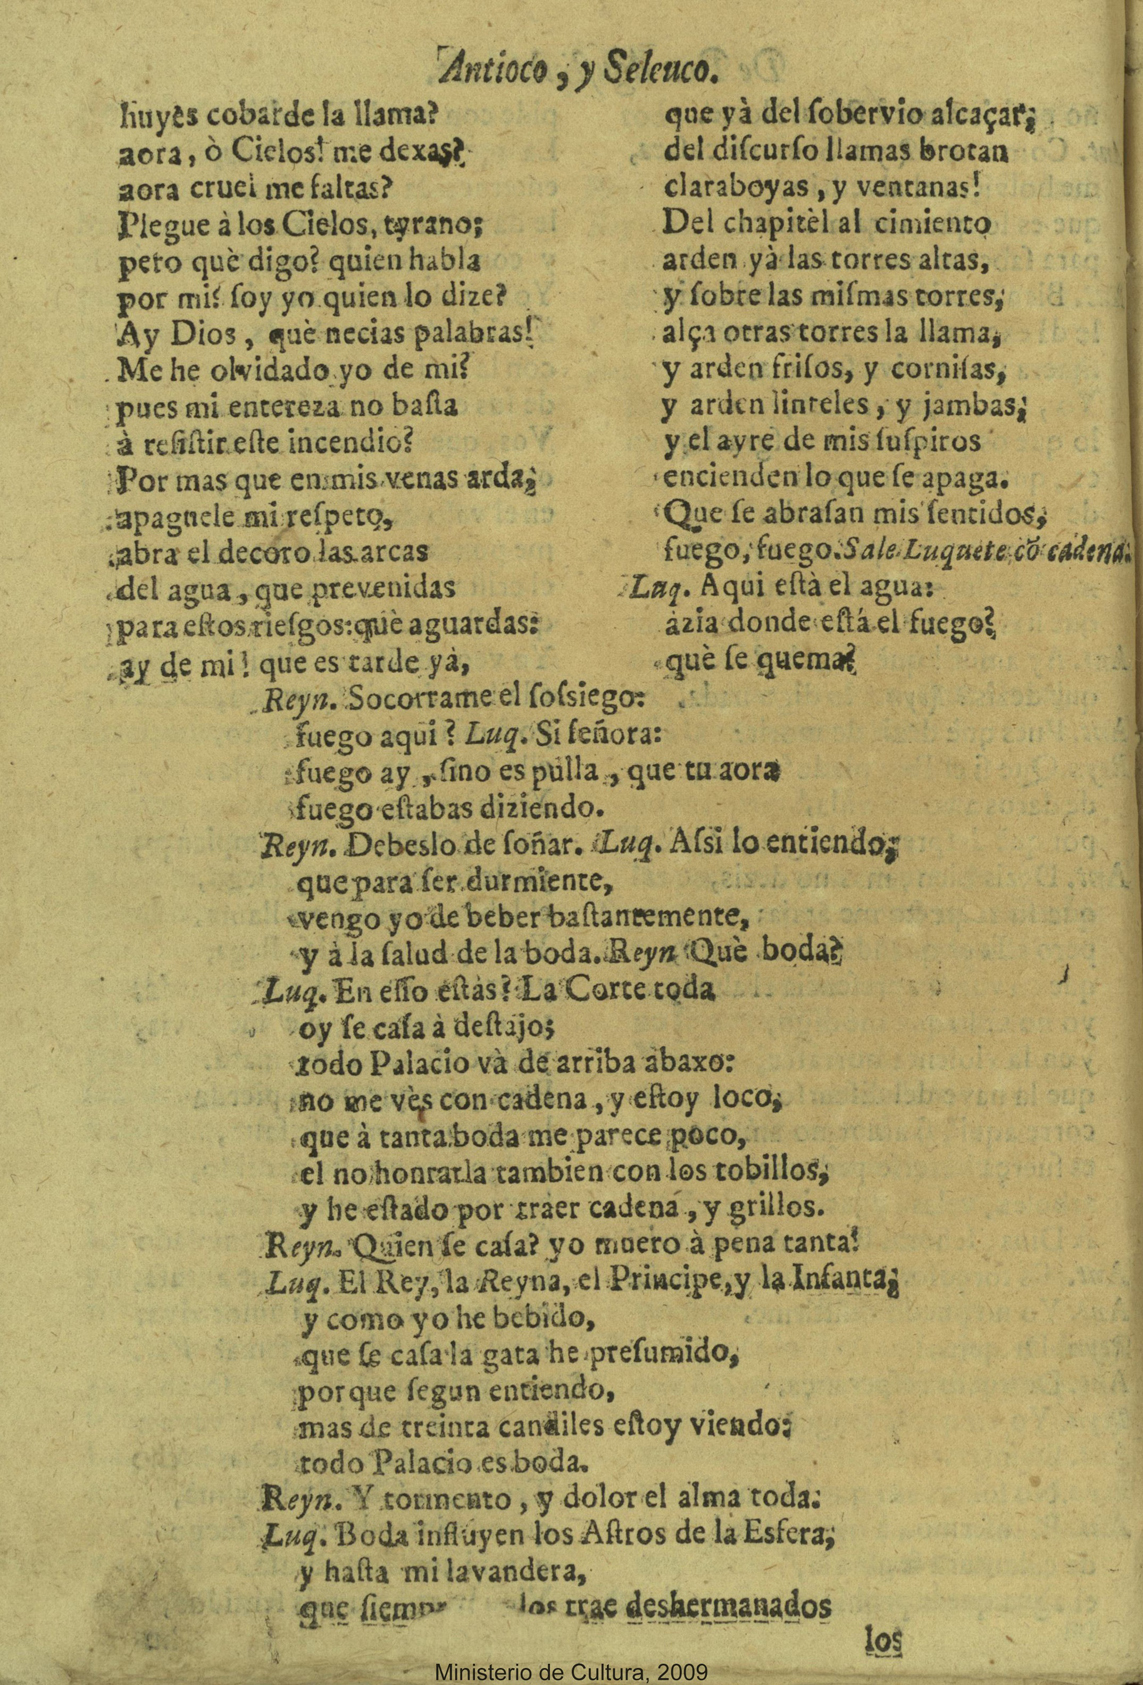 Antioco, y Seleuco.
huyes cobarde la llama?
aora, ò Cielos! me dexas?
aora cruel me faltas?
Plegue à los Cielos, tyrano;
pero què digo? quien habla
por mi? soy yo quien lo dize?
Ay Dios, què necias palabras!
Me he olvidado yo de mi?
pues mi entereza no basta
à resistir este incendio?
Por mas que en mis venas arda;
apaguele mi respeto,
abra el decoro las arcas
del agua, que prevenidas
para estos riesgos: què aguardas:
ay de mi! que es tarde yà,
que yà del sobervio alcaçar;
del discurso llamas brotan
claraboyas, y ventanas!
Del chapitèl al cimiento
arden yà las torres altas,
y sobre las mismas torres;
alça otras torres la llama,
y arden frisos, y cornisas,
y arden linteles, y jambas;
y el ayre de mis suspiros
encienden lo que se apaga.
Que se abrasan mis sentidos,
fuego, fuego. Sale Luquete cõ cadena.
Luq. Aqui està el agua:
àzia donde está el fuego?
què se quema?
Reyn. Socorrame el sossiego:
fuego aqui? Luq. Si señora:
fuego ay, sino es pulla, que tu aora
fuego estabas diziendo.
Reyn. Debeslo de soñar. Luq. Assi lo entiendo;
que para ser durmiente,
vengo yo de beber bastantemente,
y à la salud de la boda. Reyn. Què boda?
Luq. En esso estàs? La Corte toda
oy se casa à destajo;
todo Palacio và de arriba abaxo:
no me vès con cadena, y estoy loco,
que à tanta boda me parece poco,
el no honrarla tambien con los tobillos,
y he estado por traer cadena, y grillos.
Reyn. Quien se casa? yo muero à pena tanta!
Luq. El Rey, la Reyna, el Principe, y la Infanta;
y como yo he bebido,
que se casa la gata he presumido,
porque segun entiendo,
mas de treinta candiles estoy viendo:
todo Palacio es boda.
Reyn. Y tormento, y dolor el alma toda.
Luq. Boda influyen los Astros de la Esfera;
y hasta mi lavandera,
que los trae deshermanados
los
Ministerio de Cultura, 2009